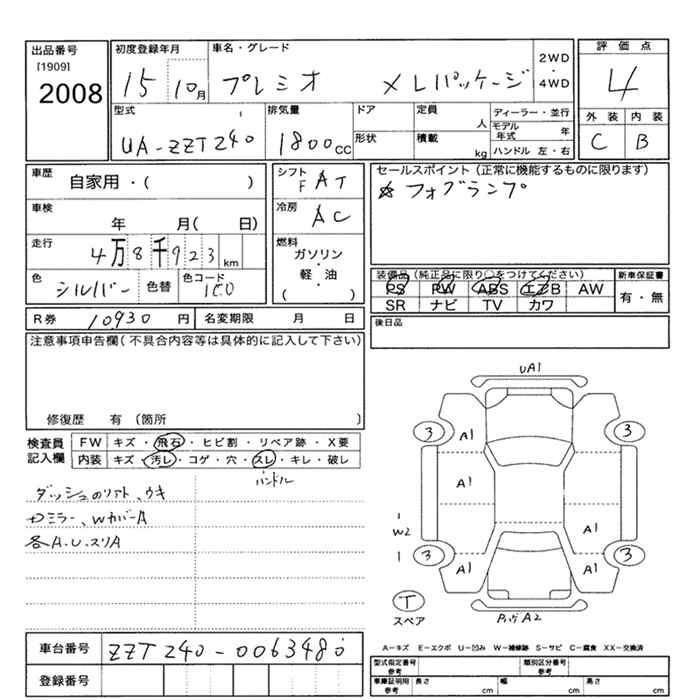 出品番号
[1909]
2008
初度登録年月
15 10月
車名・グレード
プレミオ メLパッケージ
2WD
・
4WD
評価点
4
外装 内装
C B
型式
UA-ZZT240
排気量
1800cc
ドア
形状
定員
人
積載
kg
ディーラー・並行
モデル年式 年
ハンドル 左・右
車歴
自家用・( )
車検
年 月( 日)
走行
4万8千923km
色
シルバー
色替
色コード
1E0
シフト
F AT
冷房
AC
燃料
ガソリン
・
軽・油
( )
セールスポイント(正常に機能するものに限ります)
☆フォグランプ
装備品(純正品に限り○をつけてください)
PS PW ABS エアB AW
SR ナビ TV カワ
新車保証書
有・無
R券 10930円
名変期限 月 日
後日品
注意事項申告欄(不具合内容等は具体的に記入して下さい)
修復歴 有 (箇所 )
検査員
記入欄
FW キズ・飛石・ヒビ割・リペア跡・X要
内装 キズ・汚レ・コゲ・穴・スレ・キレ・破レ
ハンドル
ダッシュのリフト、ウキ
ミラー、WカバーA
各A.U.スリA
UA1
3 3
A1
A1
W2
A1
3 3
A1 A1
T
スペア
A2
A-キズ E-エクボ U-凹み W-補修跡 S-サビ C-腐食 XX-交換済
車台番号
ZZT240-0063480
登録番号
型式指定番号
参考
類別区分番号
参考
車庫証明用
参考
長さ cm
幅 cm
高さ cm